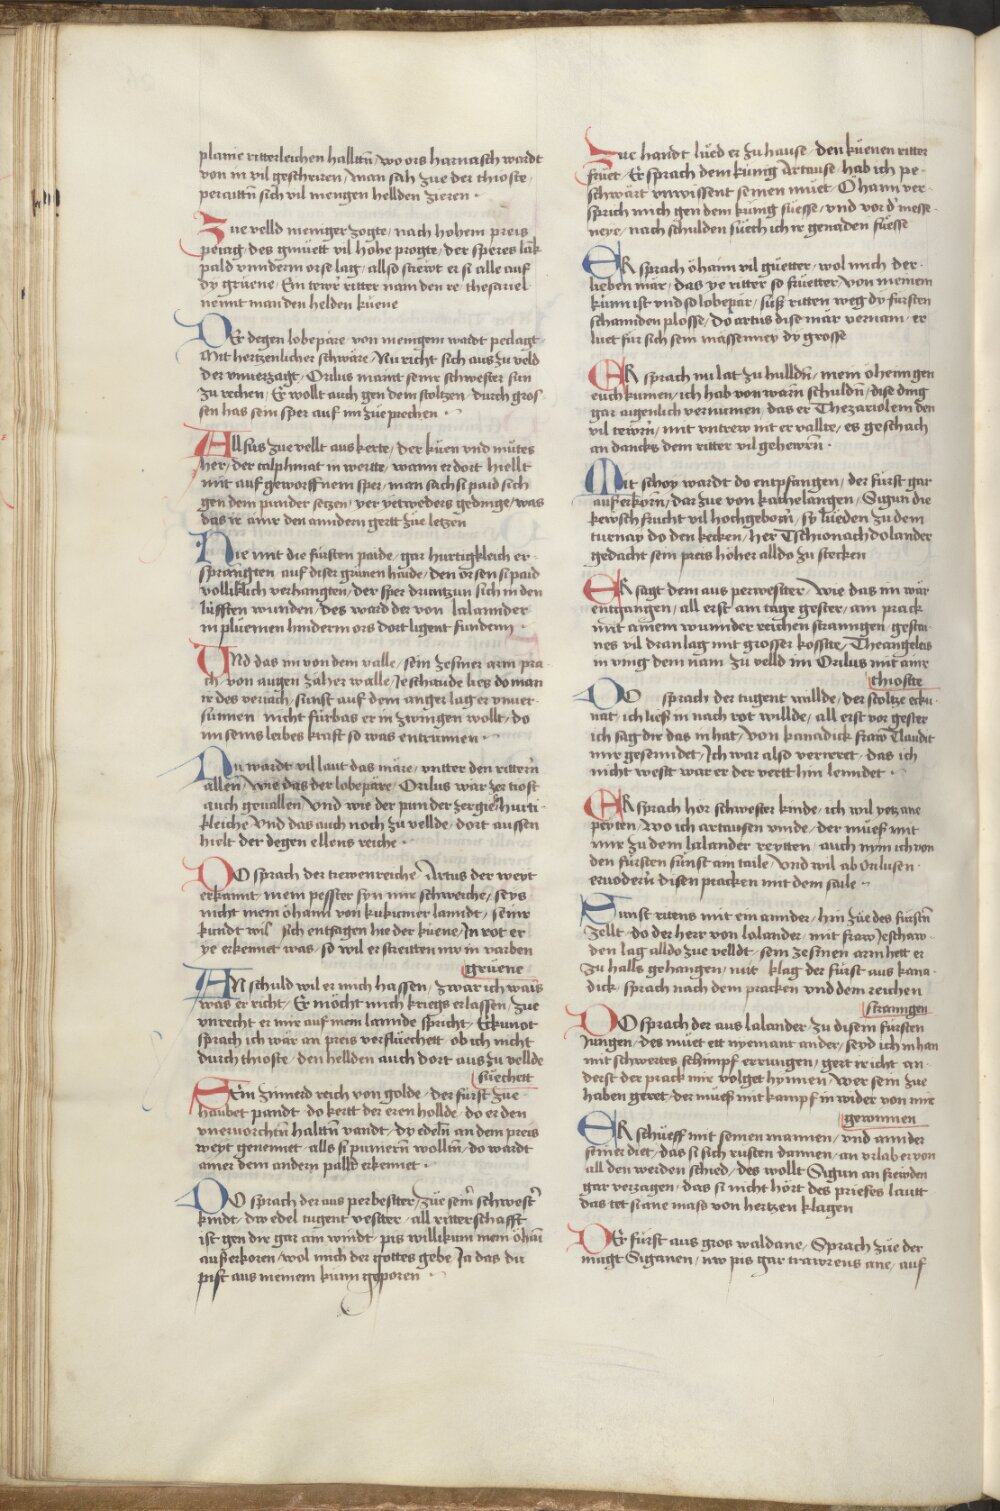 planie ritterleichen halltn̄ / wo ors harnasch wardt
von in vil geschriren / man sach zue der thioste /
peraittn̄ sich vil mengen hellden zieren ·
Zue velld meniger zogte / nach hohem preis
peiag / des gmüett vil hohe progte / der speres lāk
pald vnnderm orse lag / allso sträwt er si alle auf
dy grüene / Ein tewr ritter nam den re / thesariel
nennt man den helden küene
DEr degen lobepäre von menigem wardt peclagt
Mit hertzenlicher schwäre / Nu richt sich aus zu veld
der vnuerzagt / Orilus maint seinr schwester sun
zu rechen / Er wollt auch gen dem stoltzen / durch gros
sen has sein sper auf im züeprechen ·
Allsus zue vellt aus kerte / der küen vnd mütes
her / der talphinat in wertte / wann er dort hiellt
mit auf geworffnem sper / man sach si paid sich
gen dem punder setzen / yer yetweders gedinge / was
das ir ainr den anndern gertt züe letzen
Hie mit die fürsten paide / gar hurtigkleich er
sprangten auf diser grünen haide / den orsen si paid
volliklich verhangten / der sper druntzun sich in den
lüfften wunden / des ward der von lalannder
in plüemen hinderm ors dort ligent fundenn ·
Und das im von dem valle / sein zesmer arm pra
ch / von augen zäher walle / Jeschaude lies do man
ir des veriach / sunst auf dem anger lag er vnuer
sünnen / nicht fürbas er in zwingen wollt / do
im seins leibes kraft so was entrunnen ·
Nu wardt vil laut das märe / vntter den rittern̄
allen / wie das der lobepäre / Orilus wär zer tiost
auch geuallen / Vnd wie der punder zergie / hurti
kleiche Vnd das auch noch zu vellde / dort aussen
hielt der degen ellens reiche ·
DO sprach der trewenreiche / Artus der weyt
erkannt / mein pesster syn mir schweiche / seys
nicht mein öhaim von kukumer lanndt / seinr
kundt wil sich entsagen hie der küene / Jn rot er
ye erkennet was / so wil er streitten nw in varben
grüene
AN schuld wil er mich hassen / zwar ich wais
was er richt / Er möcht mich kriegs erlassen / zue
vnrecht er mir auf mein lannde spricht / Ekunot
sprach ich wär an preis verflüechett / ob ich nicht
durch thioste / den hellden auch dort aus zu vellde
süechett
Sein zimierd reich von golde / der fürst zue
haubet pandt / do kertt der eren hollde / do er den
vneruorchtn̄ halttn̄ vandt / dy edeln̄ an dem preis
weyt genennet / alls si puniern̄ wolltn̄ / do wardt
ainer dem andern palld erkennet ·
DO sprach der aus perbestter / züe sein̄ schwester
kindt / dw edel tugent vestter / all ritterschafft
ist gen dir gar ain windt / pis willikum mein öhaī
außerkoren / wol mich der gottes gebe / Ja das du
pist aus meinem künn geporen ·
Zue handt lüed er zu hause / den küenen ritter
früet / Er sprach dem künig Artause / hab ich pe
schwärt vnwissent seinen müet / O haim ver
sprich mich gen dem künig süesse / vnd vor d' messe
neye / nach schulden süech ich ir genaden füesse
ER sprach öhaim vil güetter / wol mich der
lieben mär / das ye ritter so früetter / von meinem
künn ist vnd so lobepär / süß ritten weg dy fürsten
schamiden plosse / do artus dise mär vernam / er
luet für sich sein massenney dy grosse
ER sprach nu lat zu hulldn̄ / mein öheim gen
euch kumen / ich hab von warn̄ schuldn̄ / dise ding
gar aigenlich vernumen / das er Thezariolem den
vil tewrn̄ / mit vntrew nit er vallte / es geschach
an dancks dem ritter vil gehewrn̄ ·
Mit schoy wardt do entpfangen / der fürst gar
außerkorn̄ / dar zue von kathelangen / Sigun die
kewsch frucht vil hochgeborn̄ / sy lüeden zu dem
turnay do den kecken / her Tschionachdolander
gedacht sein preis höher alldo zu stecken
ER sagt dem aus perwestter / wie das im wär
entgangen / all erst am tage gester / am prack
mit ainem wunnder reichen stranngen / gestai
nes vil dran lag mit grosser kosste / Theangelas
in ving dem nam zu velld im Orilus mit ainr
thioste
DO sprach der tugent willde / der stoltze eckū
nat / ich ließ in nach rot willde / all erst vor gester
ich sag dir das in hat / von kanadick fraw Claudit
mir gesenndet / Jch war also verirret / das ich
nicht wesst war er der vertt hin lenndet ·
ER sprach hor schwester kinde / ich wil yetz ane
peyten / wo ich artausen vinde / der müeß mit
mir zu dem lalander reytten / auch nym ich von
den fürsten sunst am taile / Vnd wil ab Orilusen
eruodern̄ disen pracken mit dem saile ·
Sunst ritens mit ein annder / hin züe des fürstn̄
zellt / do der herr von lolander / mit fraw Jeschaw
den lag alldo zue velldt / sein zesmen arm hett er
zu halls gehangen / mit klag der fürst aus kana
dick / sprach nach dem pracken vnd dem reichen
stranngen
DO sprach der aus lalander / zu disem fürsten
jungen / des müet ett nyemant ander / seyd ich in han
mit schwertes schimpf errungen / gert ir icht an
derst der prack mir volget hynnen / wer sein zue
haben geret / der mueß mit kampf in wider von mir
gewinnen
ER schüeff mit seinen mannen / vnd annder
seiner diet / das si sich rusten dannen / an vrlab er von
all den werden schied / des wollt Sigun an frewden
gar verzagen / das si nicht hört des priefes lautt
das tet si ane mass von hertzen klagen
DEr fürst aus gros waldane / Sprach züe der
magt Siganen / nw pis gar trawrens ane / auf